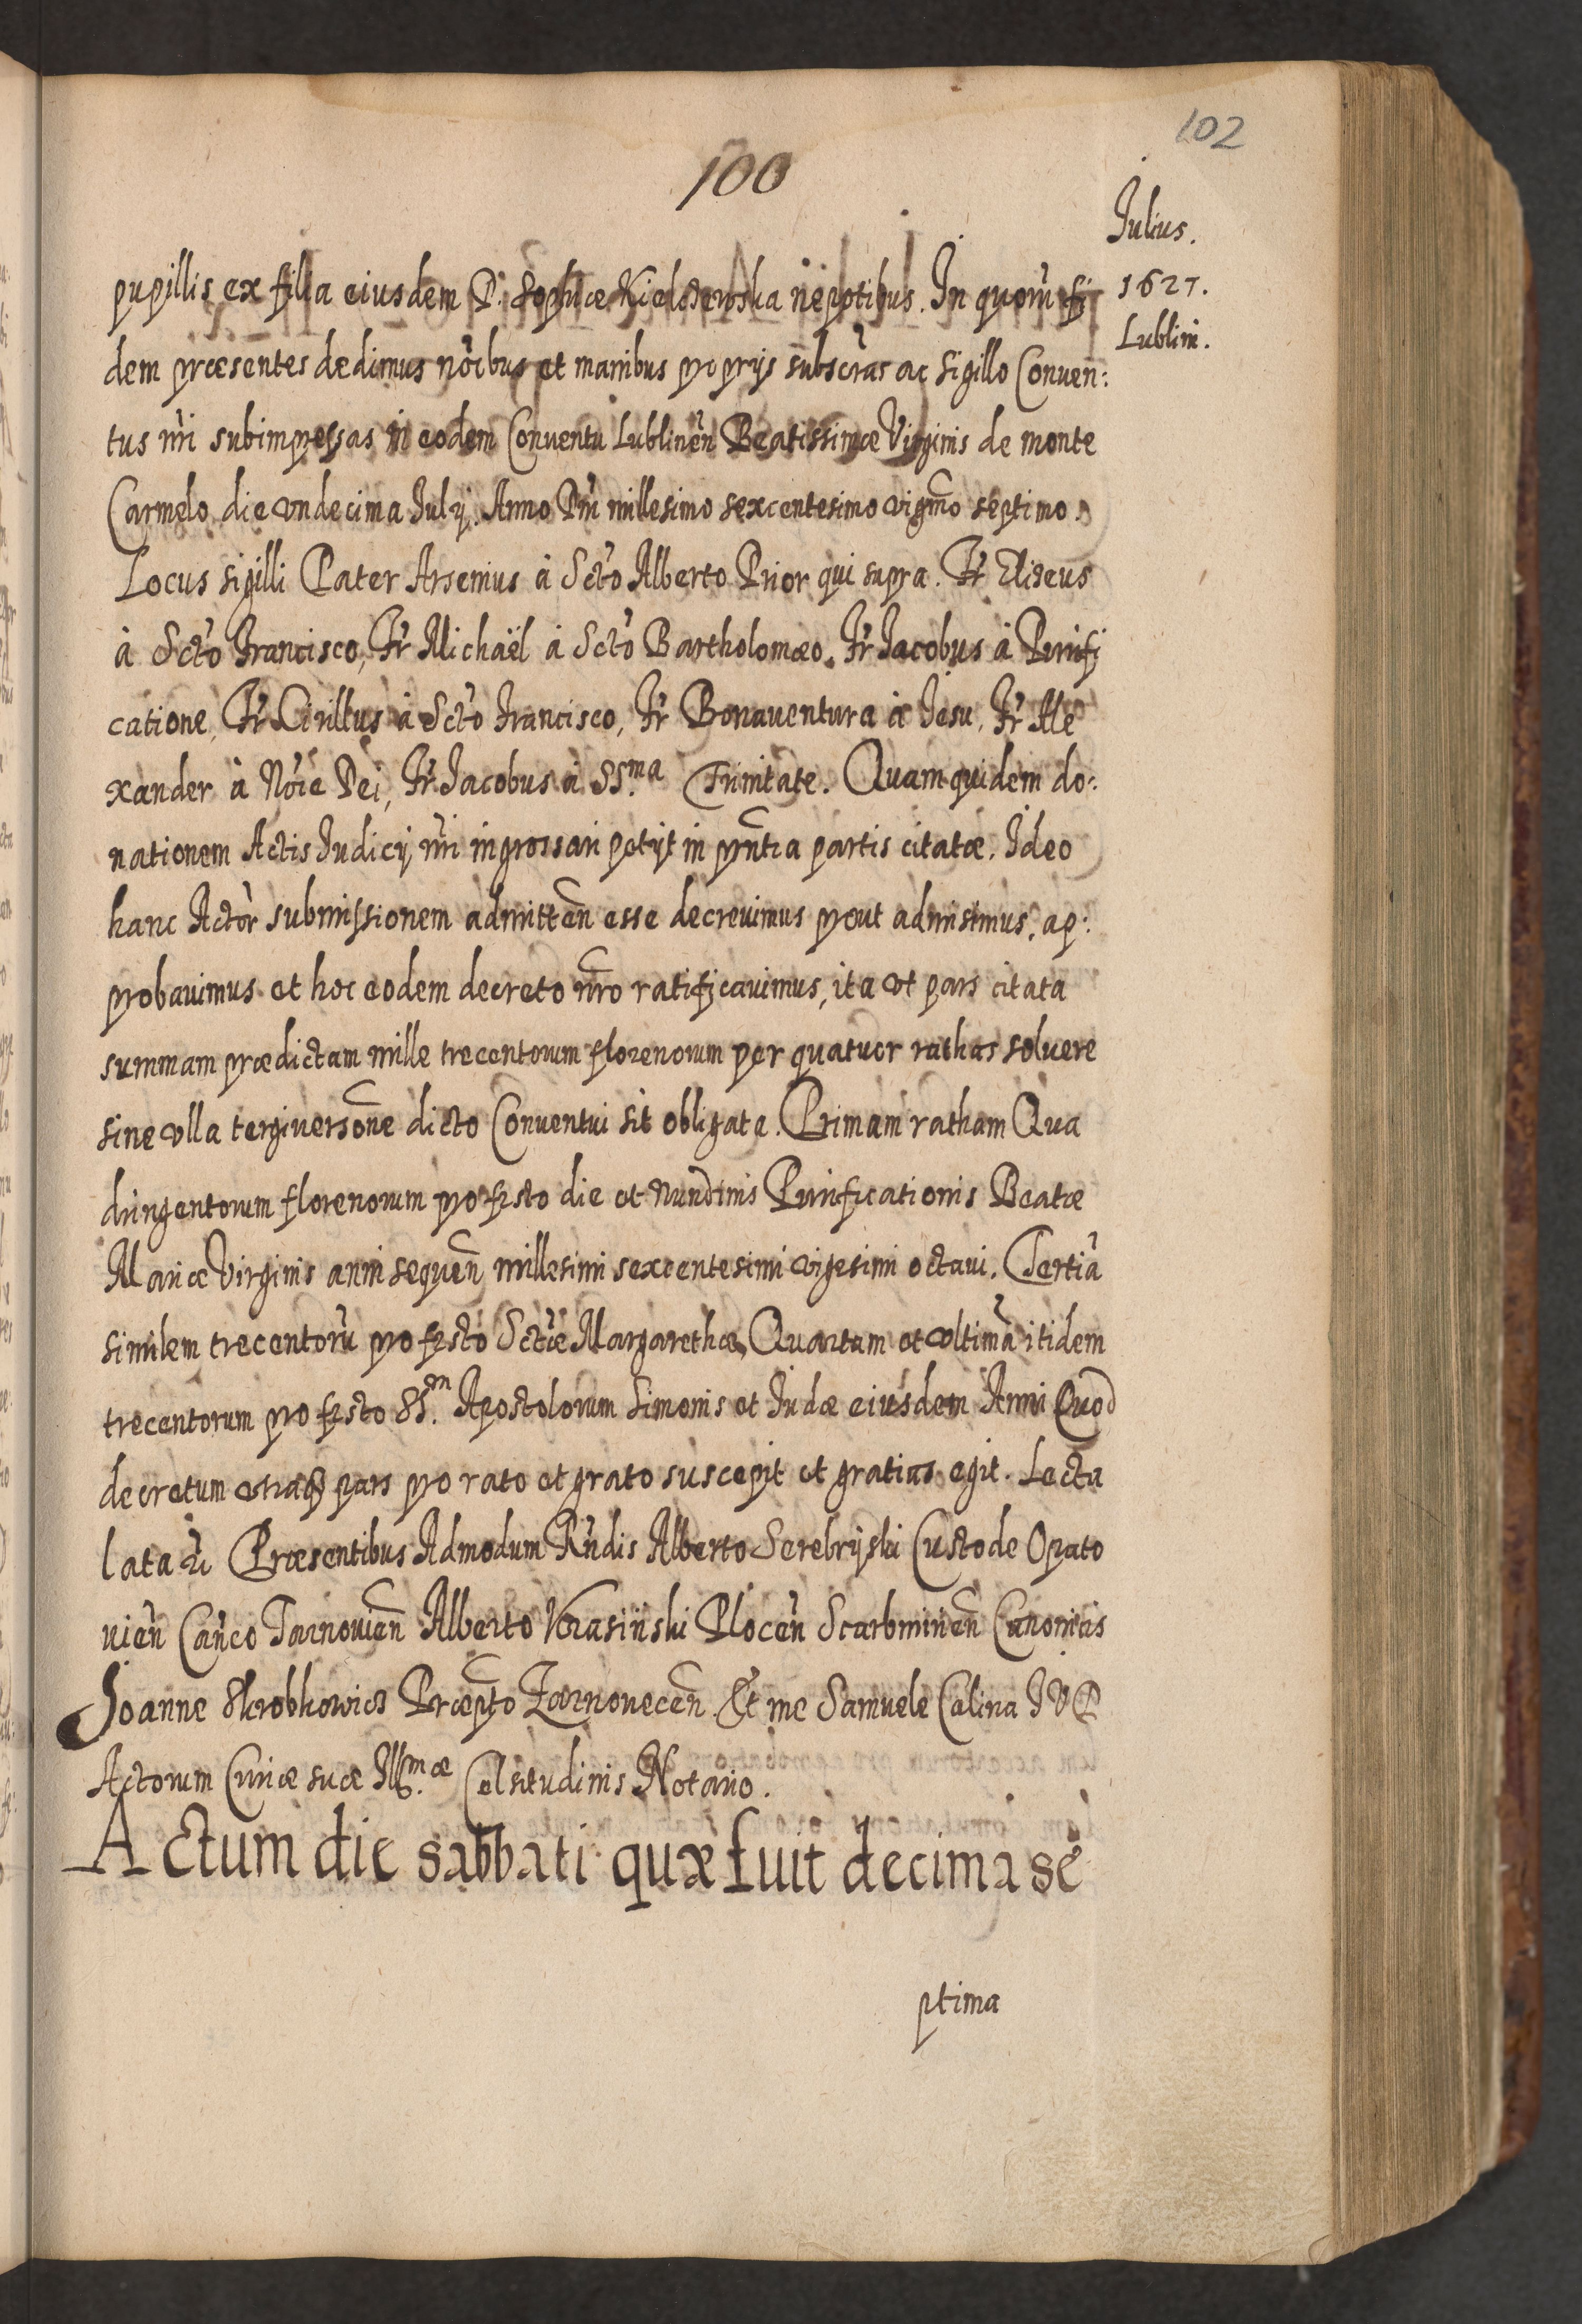 102
100
Julius.
1627.
Lublini.
pupillis ex filia eiusdem D. Sophiæ Kielczewska nepotibus. In quorũ fi
dem præsentes dedimus nõibus et manibus proprijs subscras ac sigillo Conven:
tus nri subimpressas in eodem Conventu Lublinen̄ Beatissimæ Virginis de monte
Carmelo die vndecima Julij. Anno Dni millesimo sexcentesimo vigmo septimo.
Locus sigilli Pater Arsenius à Scto Alberto Prior qui supra. Fr Eliseus
à Scto Francisco, Fr Michaël à Scto Bartholomæo. Fr Jacobus à Purifi
catione, Fr Cirillus à Scto Francisco, Fr Bonaventura à Jesu, Fr Ale
xander à Nõie Dei, Fr Jacobus à SS.ma Trinitate. Quam quidem do:
nationem Actis Judicij nri ingrossari petijt in pntia partis citatæ. Ideo
hanc Actor submissionem admitten̄ esse decrevimus prout admisimus, ap:
probavimus et hoc eodem decreto nro ratificavimus, ita vt pars citata
summam prædictam mille trecentorum florenorum per quatuor rathas soluere
sine vlla tergiversone dicto Conventui sit obligata. Primam ratham Qua
dringentorum florenorum pro festo die et nundinis Purificationis Beatæ
Mariæ Virginis anni sequen̄ millesimi sexcentesimi vigesimi octaui. Tertiã
similem trecentorũ pro festo Sctæ Margarethæ, Quartam et vltimã itidem
trecentorum pro festo SS. Apostolorum Simonis et Judæ eiusdem Anni Quod
decretum vtraq pars pro rato et grato suscepit et gratias egit. Lecta
lata Præsentibus Admodum Rndis Alberto Serebryski Custode Opato
uien̄ Canco Tarnovien̄ Alberto Krasiński Plocen̄ Scarbmirien̄ Canonicis
Joanne Skrobkowicz Præpto Zarnovecen̄ Et me Samuele Calina J V D
Actorum Curiæ suæ Illmæ Celsitudinis Notario.
Actum die sabbati quæ fuit decima se
ptima